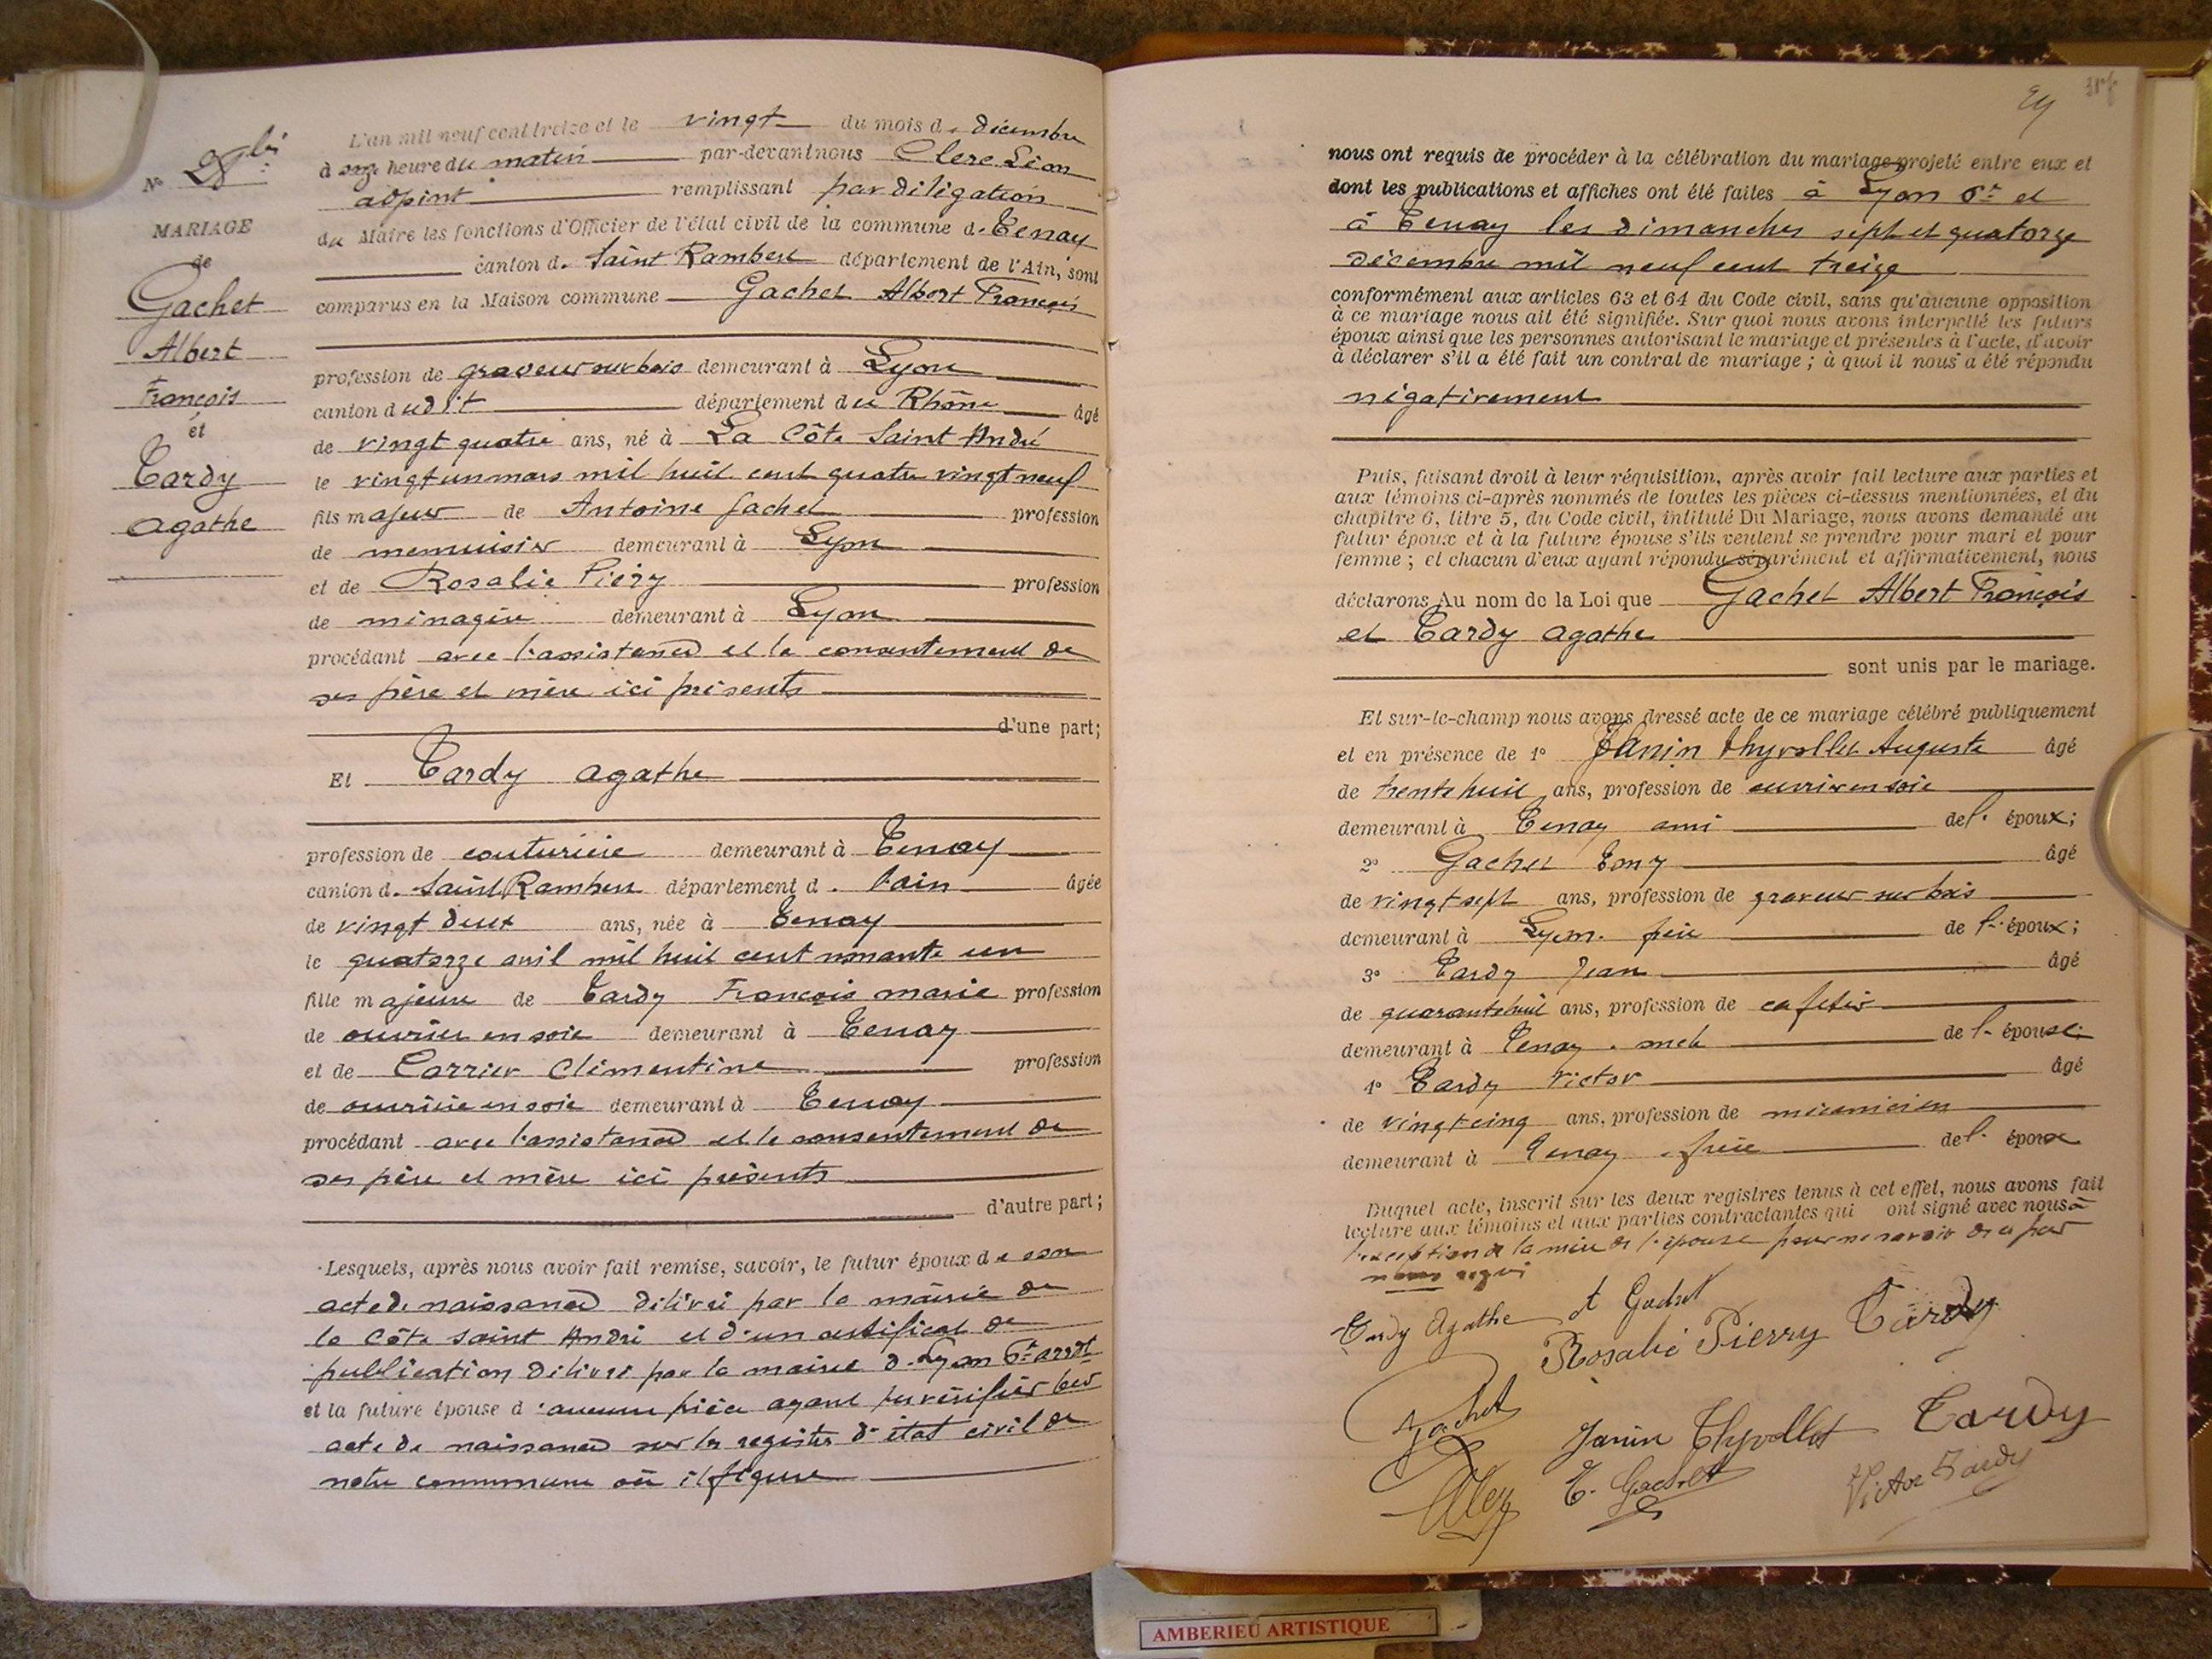 N° 28 bis
MARIAGE
de
Gachet
Albert
François
et
Tardy
Agathe
L'an mil neuf cent treize et le vingt du mois de décembre
à onze heure du matin par-devant nous Clerc Léon
adjoint remplissant par délégation
du Maire les fonctions d'Officier de l'état civil de la commune de Tenay
canton de Saint Rambert département de l'Ain, sont
comparus en la Maison commune Gachet Albert François
profession de graveur sur bois demeurant à Lyon
canton dudit département du Rhône âgé
de vingt quatre ans, né à La Côte Saint André
le vingt un mars mil huit cent quatre vingt neuf
fils majeur de Antoine Gachet profession
de menuisier demeurant à Lyon
et de Rosalie Piéry profession
de ménagère demeurant à Lyon
procédant avec l'assistance et le consentement de
ses père et mère ici présents
d'une part;
Et Tardy Agathe
profession de couturière demeurant à Tenay
canton d. Saint Rambert département d. l'ain âgée
de vingt deux ans, née à Tenay
le quatorze avril mil huit cent nonante un
fille majeure de Tardy François marie profession
de ouvrier en soie demeurant à Tenay
et de Carrier Clémentine profession
de ouvrière en soie demeurant à Tenay
procédant avec l'assistance et le consentement de
ses père et mère ici présents
d'autre part;
Lesquels, après nous avoir fait remise, savoir, le futur époux de son
acte de naissance délivré par la mairie de
la Côte Saint André et d'un certificat de
publication délivré par la mairie de Lyon 6e arrdt
et la future épouse d'aucune pièce ayant pu vérifier leur
acte de naissance sur les registres d'état civil de
notre commune où il figure
29
nous ont requis de procéder à la célébration du mariage projeté entre eux et
dont les publications et affiches ont été faites à Lyon 6e et
à Tenay les dimanches sept et quatorze
décembre mil neuf cent treize
conformément aux articles 63 et 64 du Code civil, sans qu'aucune opposition
à ce mariage nous ait été signifiée. Sur quoi nous avons interpellé les futurs
époux ainsi que les personnes autorisant le mariage et présentes à l'acte, d'avoir
à déclarer s'il a été fait un contrat de mariage ; à quoi il nous a été répondu
négativement
Puis, faisant droit à leur réquisition, après avoir fait lecture aux parties et
aux témoins ci-après nommés de toutes les pièces ci-dessus mentionnées, et du
chapitre 6, titre 5, du Code civil, intitulé Du Mariage, nous avons demandé au
futur époux et à la future épouse s'ils veulent se prendre pour mari et pour
femme ; et chacun d'eux ayant répondu séparément et affirmativement, nous
déclarons Au nom de la Loi que Gachet Albert François
et Tardy Agathe
sont unis par le mariage.
Et sur-le-champ nous avons dressé acte de ce mariage célébré publiquement
et en présence de 1° Janin Thyvollet Auguste âgé
de trente huit ans, profession de ouvrier en soie
demeurant à Tenay ami de l' époux;
2° Gachet Tony âgé
de vingt sept ans, profession de graveur sur bois
demeurant à Lyon. frère de l' époux;
3° Tardy Jean âgé
de quarante huit ans, profession de cafetier
demeurant à Tenay . oncle de l' épouse;
4° Tardy Victor âgé
de vingt cinq ans, profession de mécanicien
demeurant à Tenay . frère de l' épouse
Duquel acte, inscrit sur les deux registres tenus à cet effet, nous avons fait
lecture aux témoins et aux parties contractantes qui ont signé avec nous à
l'exception de la mère de l'épouse pour ne savoir de ce par
nous requis
Tardy Agathe A Gachet
Rosalie Pierry Tardy
Gachet
Janin Thyvollet Tardy
T. Gachet Victor Tardy
AMBERIEU ARTISTIQUE